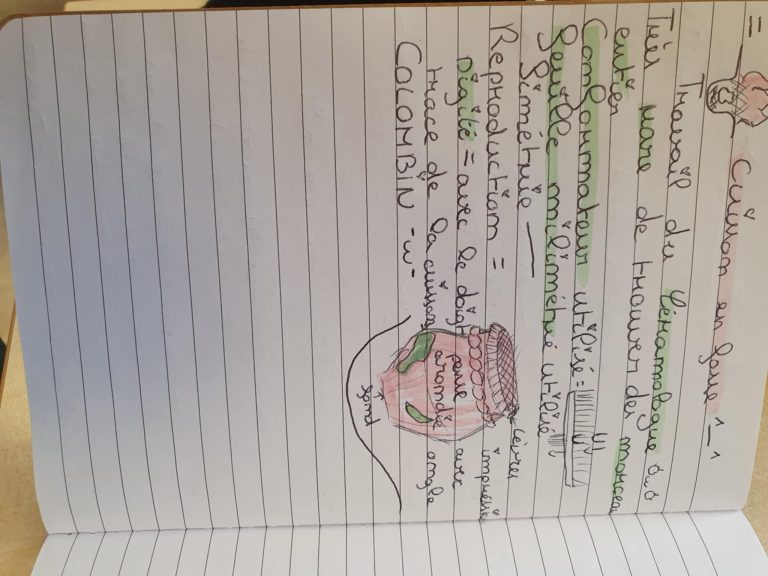 = Cuisson en fosse 1_1
Travail du Céramologue òωó
Très rare de trouver des morceau
entier
Comformateur utilisé =
feuille milimétré utilisé
simétrie —
Reproduction =
Digité = avec le doigt
trace de la cuisson
COLOMBIN -w-
lèvres
impression
avec
ongle
panse
arrondie
fond